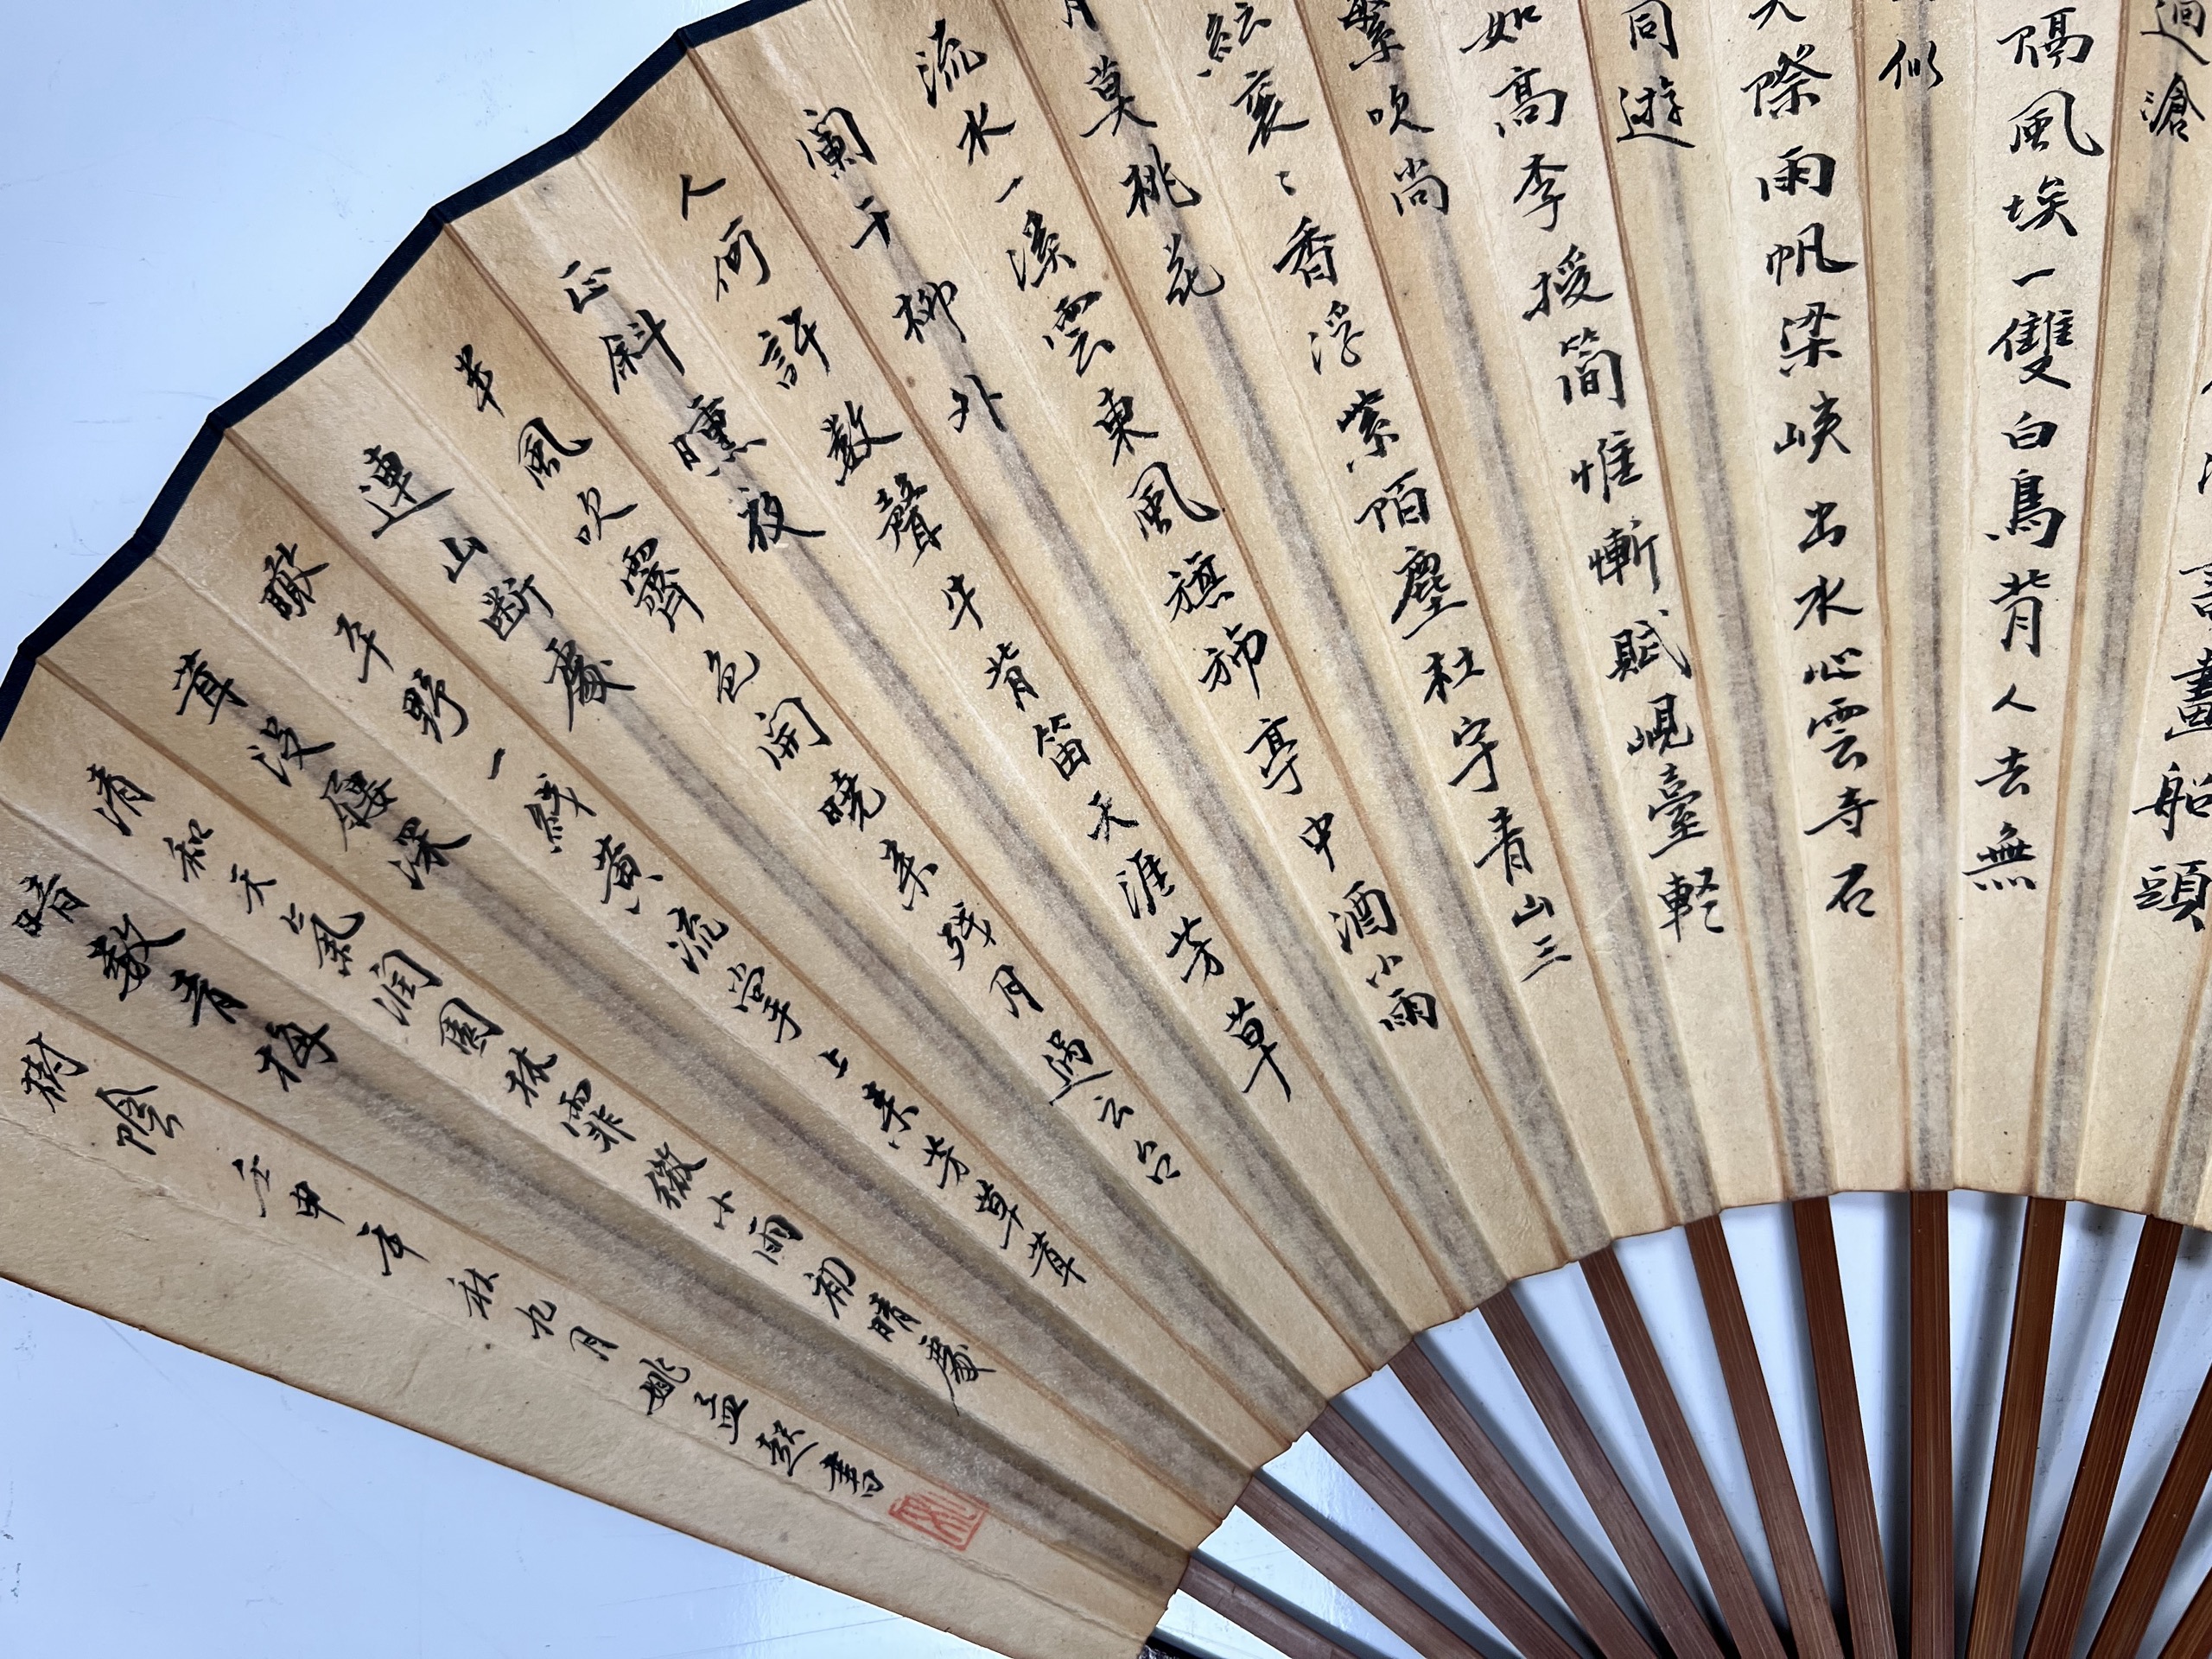 迴滄
畫船頭
隔風埃一雙白鳥背人去無
似
際雨帆梁峽出水心雲寺石
同遊
如高李授簡惟慚賦峴臺輕
絮吹尚
紜裘〻香浮紫陌塵杜宇青山三
月莫桃花
流水一溪雲東風旗斾亭中酒小雨
闌干柳外
人何許數聲牛背笛天涯芳草
正斜曛夜
半風吹霽色開曉來殘月過云台
連山斷處
瞰平野一線黃流掌上來芳草茸
茸沒屨深
清和天氣潤園林霏微小雨初晴處
暗數青梅
樹陰
壬申年秋九月姚孟起書